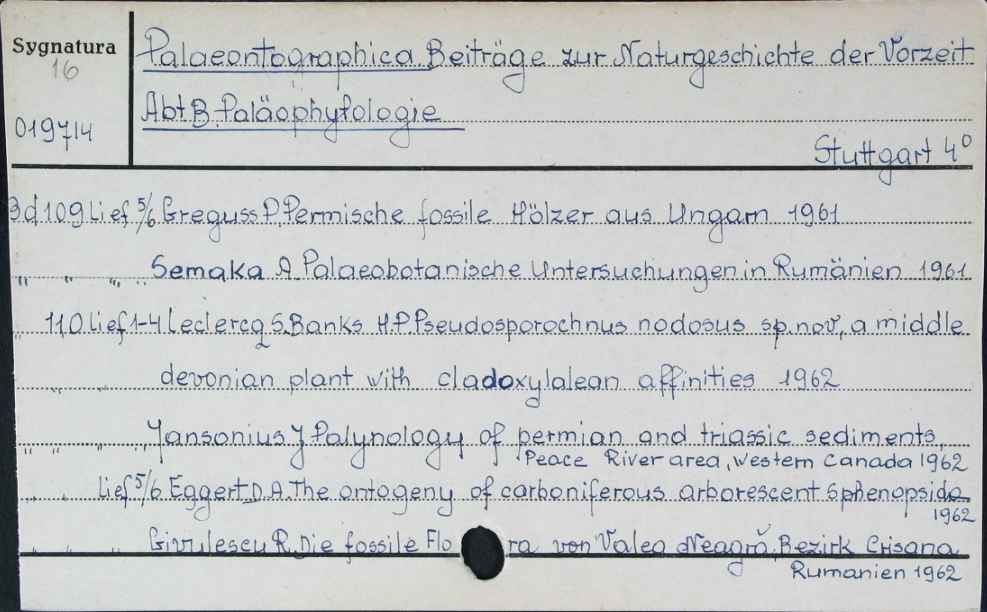 Sygnatura
16
019714
Palaeontographica. Beiträge zur Naturgeschichte der Vorzeit
Abt. B. Paläophytologie
Stuttgart 4⁰
Bd 109 Lief 5/6 Greguss P. Permische fossile Hölzer aus Ungarn 1961
" " " Semaka A. Palaeobotanische Untersuchungen in Rumänien 1961
" 110 Lief 1-4 Leclercq S. Banks H.P. Pseudosporochnus nodosus sp. nov., a middle
" devonian plant with cladoxylalean affinities 1962
" " " " Jansonius J. Palynology of permian and triassic sediments,
Peace River area, Western Canada 1962
" " Lief 5/6 Eggert D.A. The ontogeny of carboniferous arborescent sphenopsida
1962
" " " Givulescu R. Die fossile Flora von Valea Neagră, Bezirk Crisana
Rumanien 1962